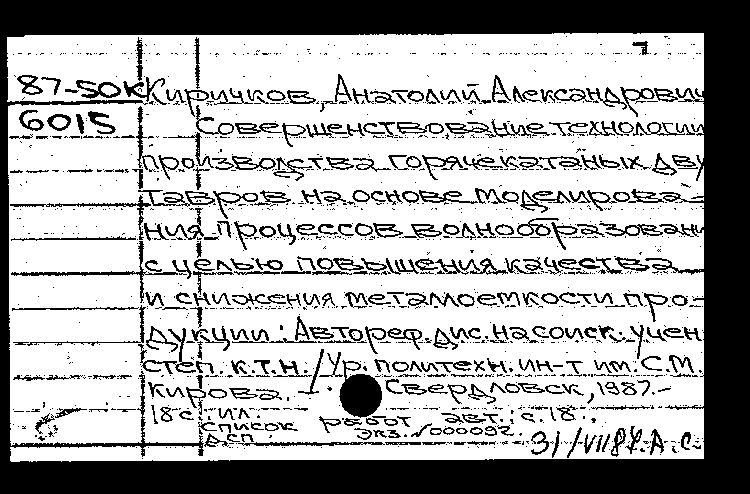 7
87-50К Киричков, Анатолий Александрович
6015 Совершенствование технологии
производства горячекатаных дву
тавров на основе моделирова-
ния процессов волнообразован
с целью повышения качества
и снижения металлоемкости про-
дукции: Автореф. дис. на соиск. учен
степ. к.т.н. / Ур. политехн. ин-т им. С.М.
Кирова. – Свердловск, 1987.–
18 с. ил.
список работ авт.: с. 18.
д.сп. Экз. №000092.
31/VII 87. А. С.